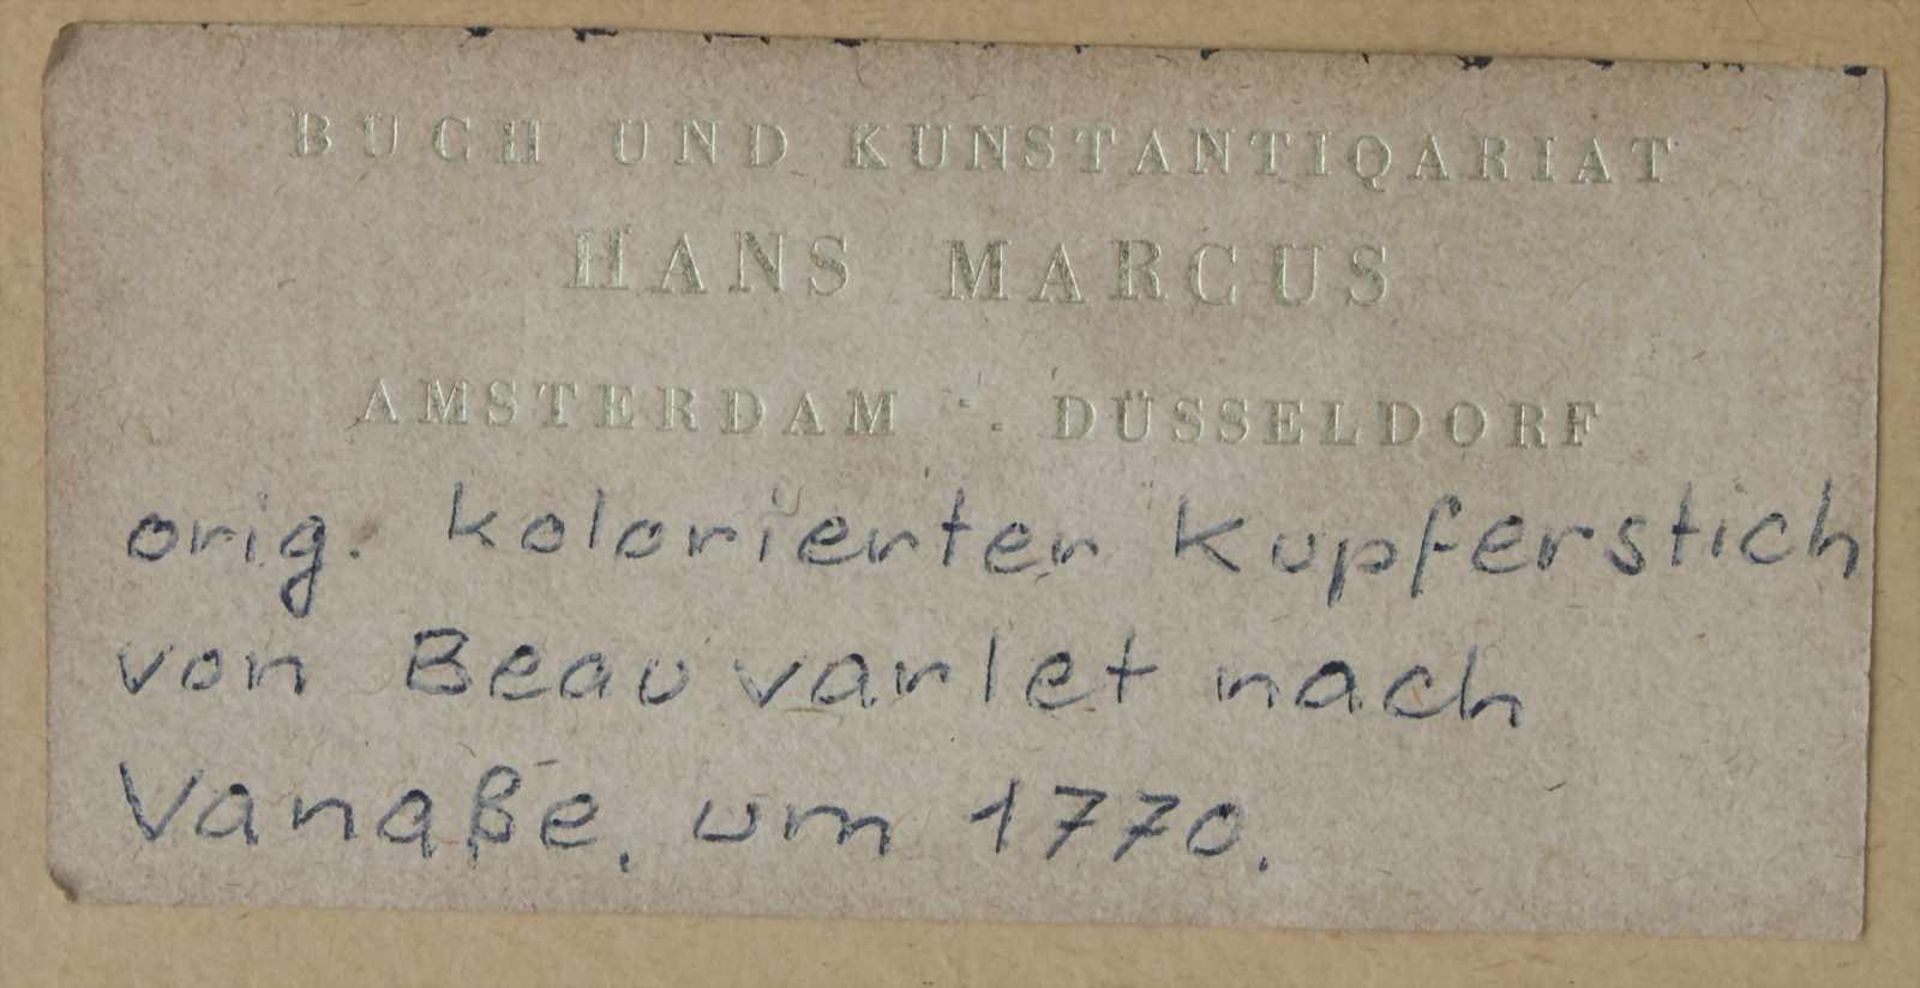 BUCH UND KUNSTANTIQARIAT
HANS MARCUS
AMSTERDAM - DÜSSELDORF
orig. kolorierter Kupferstich
von Beauvarlet nach
Vanaße, um 1770.